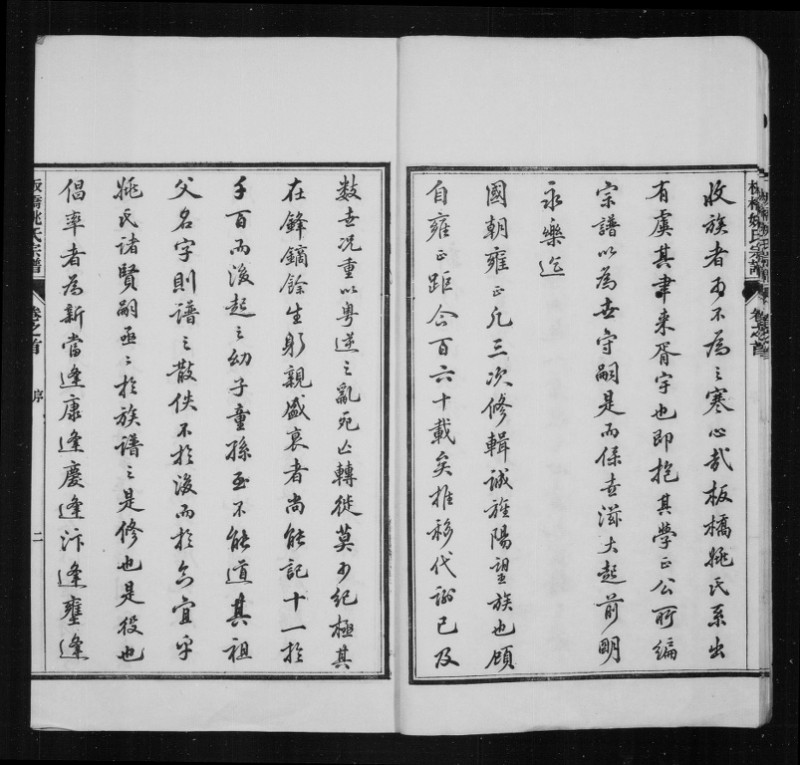 收族者由不為之寒心哉板橋姚氏系出
有虞其聿来胥宇也即抱其學正公所編
宗譜以為世守嗣是而保世滋大起前明
永樂迄
國朝雍正凡三次修輯誠旌陽望族也顧
自雍正距今百六十載矣推移代謝已及
數世况重以粤逆之亂死亡轉徙莫可紀極其
在鋒鏑餘生躬親盛衰者尚能記十一於
千百而後起之幼子童孫至不能道其祖
父名字則譜之散佚不於後而於今宜乎
姚氏諸賢嗣亟亟於族譜之是修也是役也
倡率者為新當逢康逢慶逢汴逢壅逢
板橋姚氏宗譜
卷之首
序
二